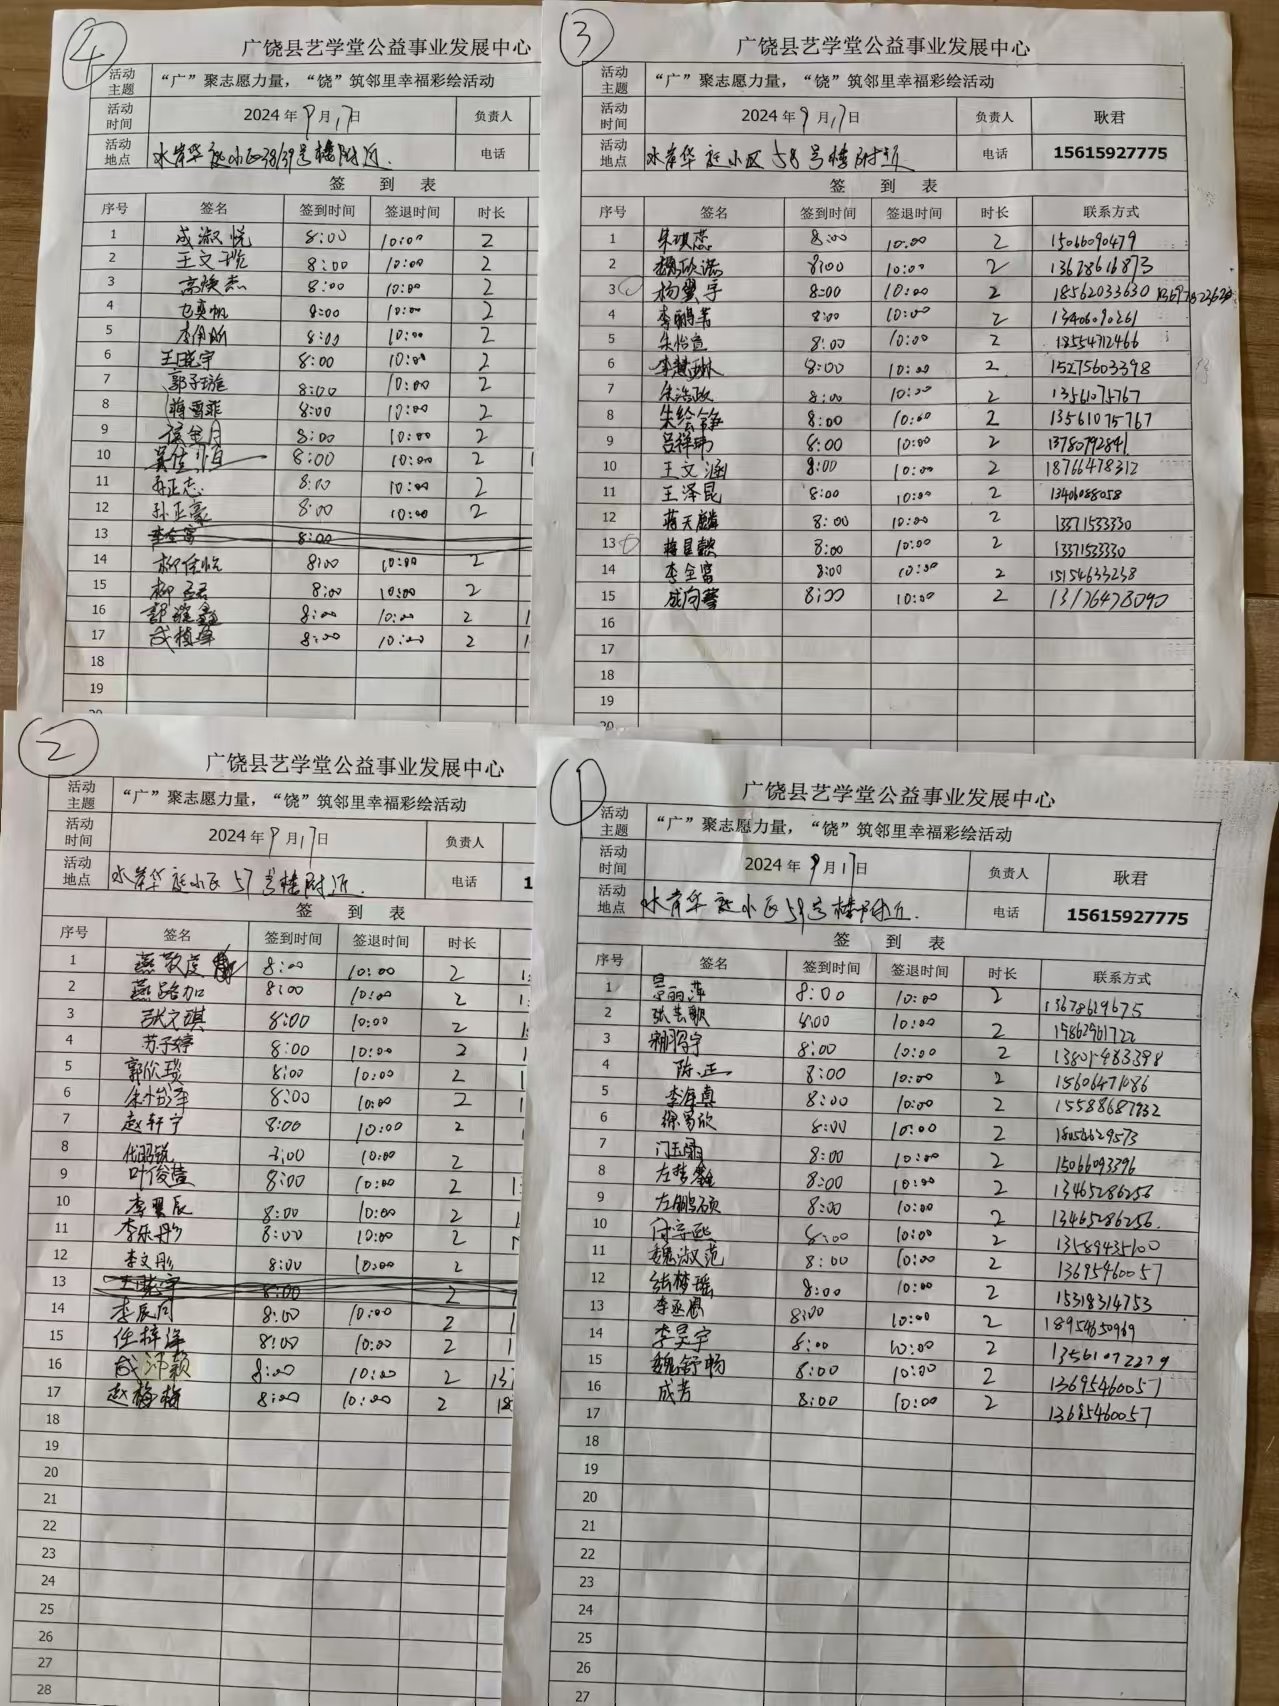 ④
广饶县艺学堂公益事业发展中心
活动主题 “广”聚志愿力量，“饶”筑邻里幸福彩绘活动
活动时间 2024年9月17日 负责人
活动地点 水岸华庭小区38/39号楼附近. 电话
签 到 表
序号 签名 签到时间 签退时间 时长
1 成淑悦 8:00 10:00 2
2 王文悦 8:00 10:00 2
3 高焕杰 8:00 10:00 2
4 8:00 10:00 2
5 8:00 10:00 2
6 王晓宇 8:00 10:00 2
7 郭子璇 8:00 10:00 2
8 蒋雪菲 8:00 10:00 2
9 8:00 10:00 2
10 8:00 10:00 2
11 孙正志 8:00 10:00 2
12 孙正豪 8:00 10:00 2
13 李全富 8:00
14 柳佳悦 8:00 10:00 2
15 柳 8:00 10:00 2
16 8:00 10:00 2
17 8:00 10:00 2
18
19
20
③
广饶县艺学堂公益事业发展中心
活动主题 “广”聚志愿力量，“饶”筑邻里幸福彩绘活动
活动时间 2024年9月17日 负责人 耿君
活动地点 水岸华庭小区58号楼附近 电话 15615927775
签 到 表
序号 签名 签到时间 签退时间 时长 联系方式
1 朱琪蕊 8:00 10:00 2 15066090479
2 魏欣诺 8:00 10:00 2 13678616873
3 杨翼宇 8:00 10:00 2 18562033630
4 李鹏菁 8:00 10:00 2 1340690261
5 朱怡宣 8:00 10:00 2 18554712466
6 李慧琳 8:00 10:00 2 15275603398
7 朱浩政 8:00 10:00 2 13561075767
8 朱绘铮 8:00 10:00 2 13561075767
9 吕祥玮 8:00 10:00 2 1378079284
10 王文涵 8:00 10:00 2 18766478312
11 王泽昆 8:00 10:00 2 13406088058
12 蒋天麟 8:00 10:00 2 13371533330
13 蒋星懿 8:00 10:00 2 13371533330
14 李全富 8:00 10:00 2 15154633238
15 成向蓉 8:00 10:00 2 13176478090
16
17
18
19
20
②
广饶县艺学堂公益事业发展中心
活动主题 “广”聚志愿力量，“饶”筑邻里幸福彩绘活动
活动时间 2024年9月17日 负责人
活动地点 水岸华庭小区57号楼附近. 电话 1
签 到 表
序号 签名 签到时间 签退时间 时长
1 燕敬度 8:00 10:00 2
2 燕路加 8:00 10:00 2
3 张文琪 8:00 10:00 2
4 苏子婷 8:00 10:00 2
5 郭欣琰 8:00 10:00 2
6 余怡泽 8:00 10:00 2
7 赵轩宁 8:00 10:00 2
8 代昭锐 8:00 10:00 2
9 叶俊萱 8:00 10:00 2
10 李翼辰 8:00 10:00 2
11 李乐彤 8:00 10:00 2
12 李文彤 8:00 10:00 2
13 王晓宇 8:00 2
14 李辰同 8:00 10:00 2
15 任梓洋 8:00 10:00 2
16 成沛颖 8:00 10:00 2 137
17 赵梅梅 8:00 10:00 2 18
18
19
20
21
22
23
24
25
26
27
28
①
广饶县艺学堂公益事业发展中心
活动主题 “广”聚志愿力量，“饶”筑邻里幸福彩绘活动
活动时间 2024年9月17日 负责人 耿君
活动地点 水岸华庭小区59号楼附近. 电话 15615927775
签 到 表
序号 签名 签到时间 签退时间 时长 联系方式
1 景丽萍 8:00 10:00 2 13678619675
2 张芸歌 8:00 10:00 2 19862961722
3 8:00 10:00 2 13805483398
4 陈正 8:00 10:00 2 15606471086
5 李泽真 8:00 10:00 2 15588687932
6 徐易欣 8:00 10:00 2 18054629573
7 门玉雨 8:00 10:00 2 15066093396
8 左梦鑫 8:00 10:00 2 13465286256
9 左鹏硕 8:00 10:00 2 13465286256.
10 付字熙 8:00 10:00 2 13589435100
11 魏淑范 8:00 10:00 2 13695460057
12 张梦瑶 8:00 10:00 2 15318314753
13 李丞恩 8:00 10:00 2 18954650969
14 李昊宇 8:00 10:00 2 13561072279
15 魏舒畅 8:00 10:00 2 13695460057
16 成芳 8:00 10:00 2 13685460057
17
18
19
20
21
22
23
24
25
26
27